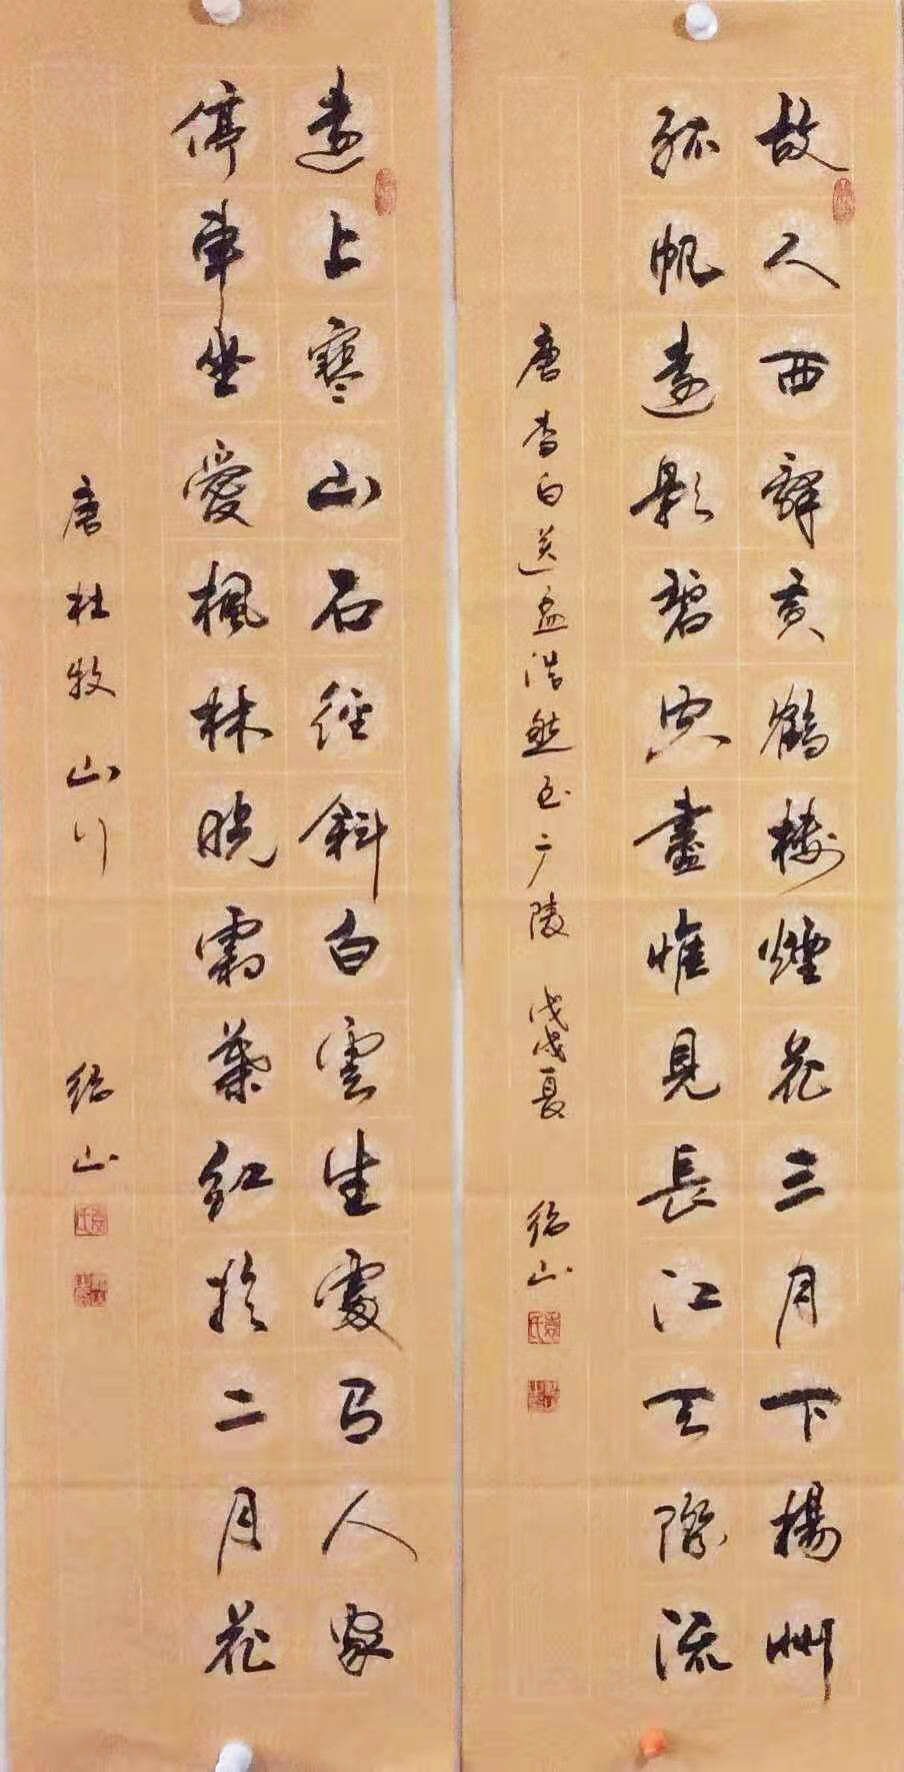 故人西辭黄鶴樓煙花三月下楊州
孤帆遠影碧空盡惟見長江天際流
唐李白送孟浩然至广陵 戊戌夏 山
遠上寒山石徑斜白雲生處有人家
停車坐愛楓林晚霜葉紅於二月花
唐杜牧山行 山